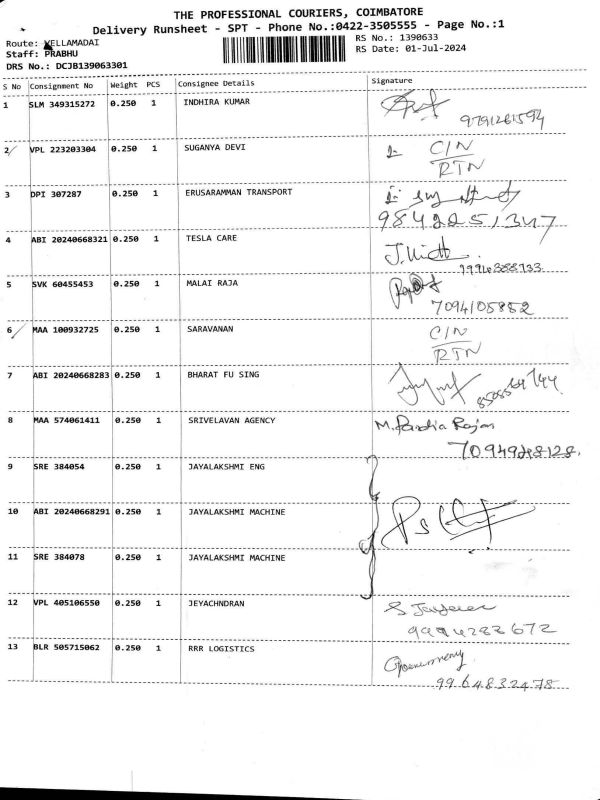 THE PROFESSIONAL COURIERS, COIMBATORE
Delivery Runsheet - SPT - Phone No.:0422-3505555 - Page No.:1
Route: VELLAMADAI RS No.: 1390633
Staff: PRABHU RS Date: 01-Jul-2024
DRS No.: DCJB139063301
S No Consignment No Weight PCS Consignee Details Signature
1 SLM 349315272 0.250 1 INDHIRA KUMAR
9791261594
2 VPL 223203304 0.250 1 SUGANYA DEVI C/N
RTN
3 DPI 307287 0.250 1 ERUSARAMMAN TRANSPORT
9842251347
4 ABI 20240668321 0.250 1 TESLA CARE
5 SVK 60455453 0.250 1 MALAI RAJA
7094105852
6 MAA 100932725 0.250 1 SARAVANAN C/N
RTN
7 ABI 20240668283 0.250 1 BHARAT FU SING
8 MAA 574061411 0.250 1 SRIVELAVAN AGENCY M. Pandia Rajan
7094948128.
9 SRE 384054 0.250 1 JAYALAKSHMI ENG
10 ABI 20240668291 0.250 1 JAYALAKSHMI MACHINE
11 SRE 384078 0.250 1 JAYALAKSHMI MACHINE
12 VPL 405106550 0.250 1 JEYACHNDRAN
9994282672
13 BLR 505715062 0.250 1 RRR LOGISTICS
9964832478